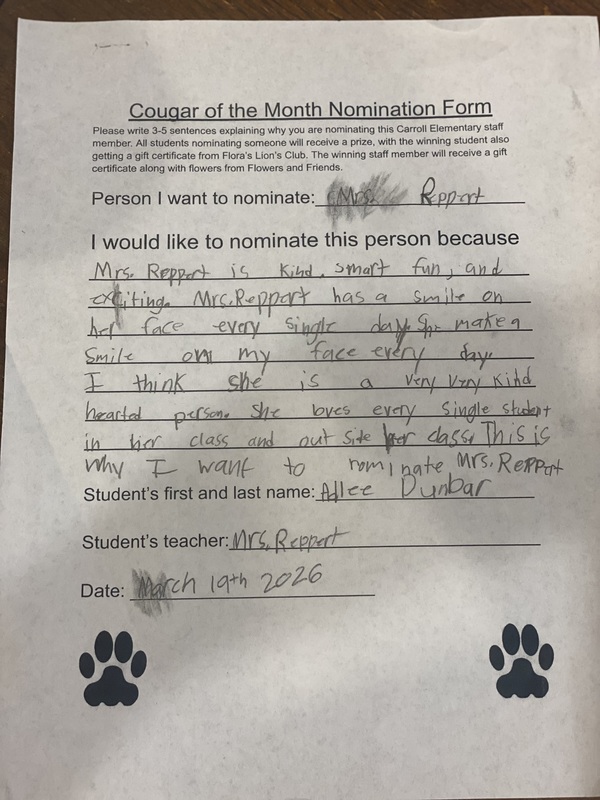 Cougar of the Month Nomination Form
Please write 3-5 sentences explaining why you are nominating this Carroll Elementary staff
member. All students nominating someone will receive a prize, with the winning student also
getting a gift certificate from Flora's Lion's Club. The winning staff member will receive a gift
certificate along with flowers from Flowers and Friends.
Person I want to nominate: Mrs. Reppert
I would like to nominate this person because
Mrs. Reppert is kind, smart fun, and
exciting. Mrs. Reppert has a smile on
her face every single day. She make a
Smile on my face every day.
I think she is a very very kind
hearted person. She loves every single student
in her class and out site her class. This is
why I want to nominate Mrs. Reppert
Student's first and last name: Adlee Dunbar
Student's teacher: Mrs. Reppert
Date: March 19th 2026